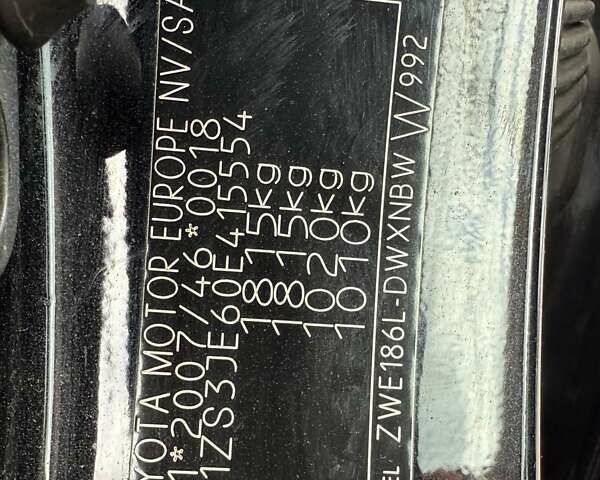 YOTA MOTOR EUROPE NV/SA
1*2007/46*0018
1ZS3JE60E415554
1815kg
1815kg
1020kg
1010kg
EL ZWE186L-DWXNBW W992